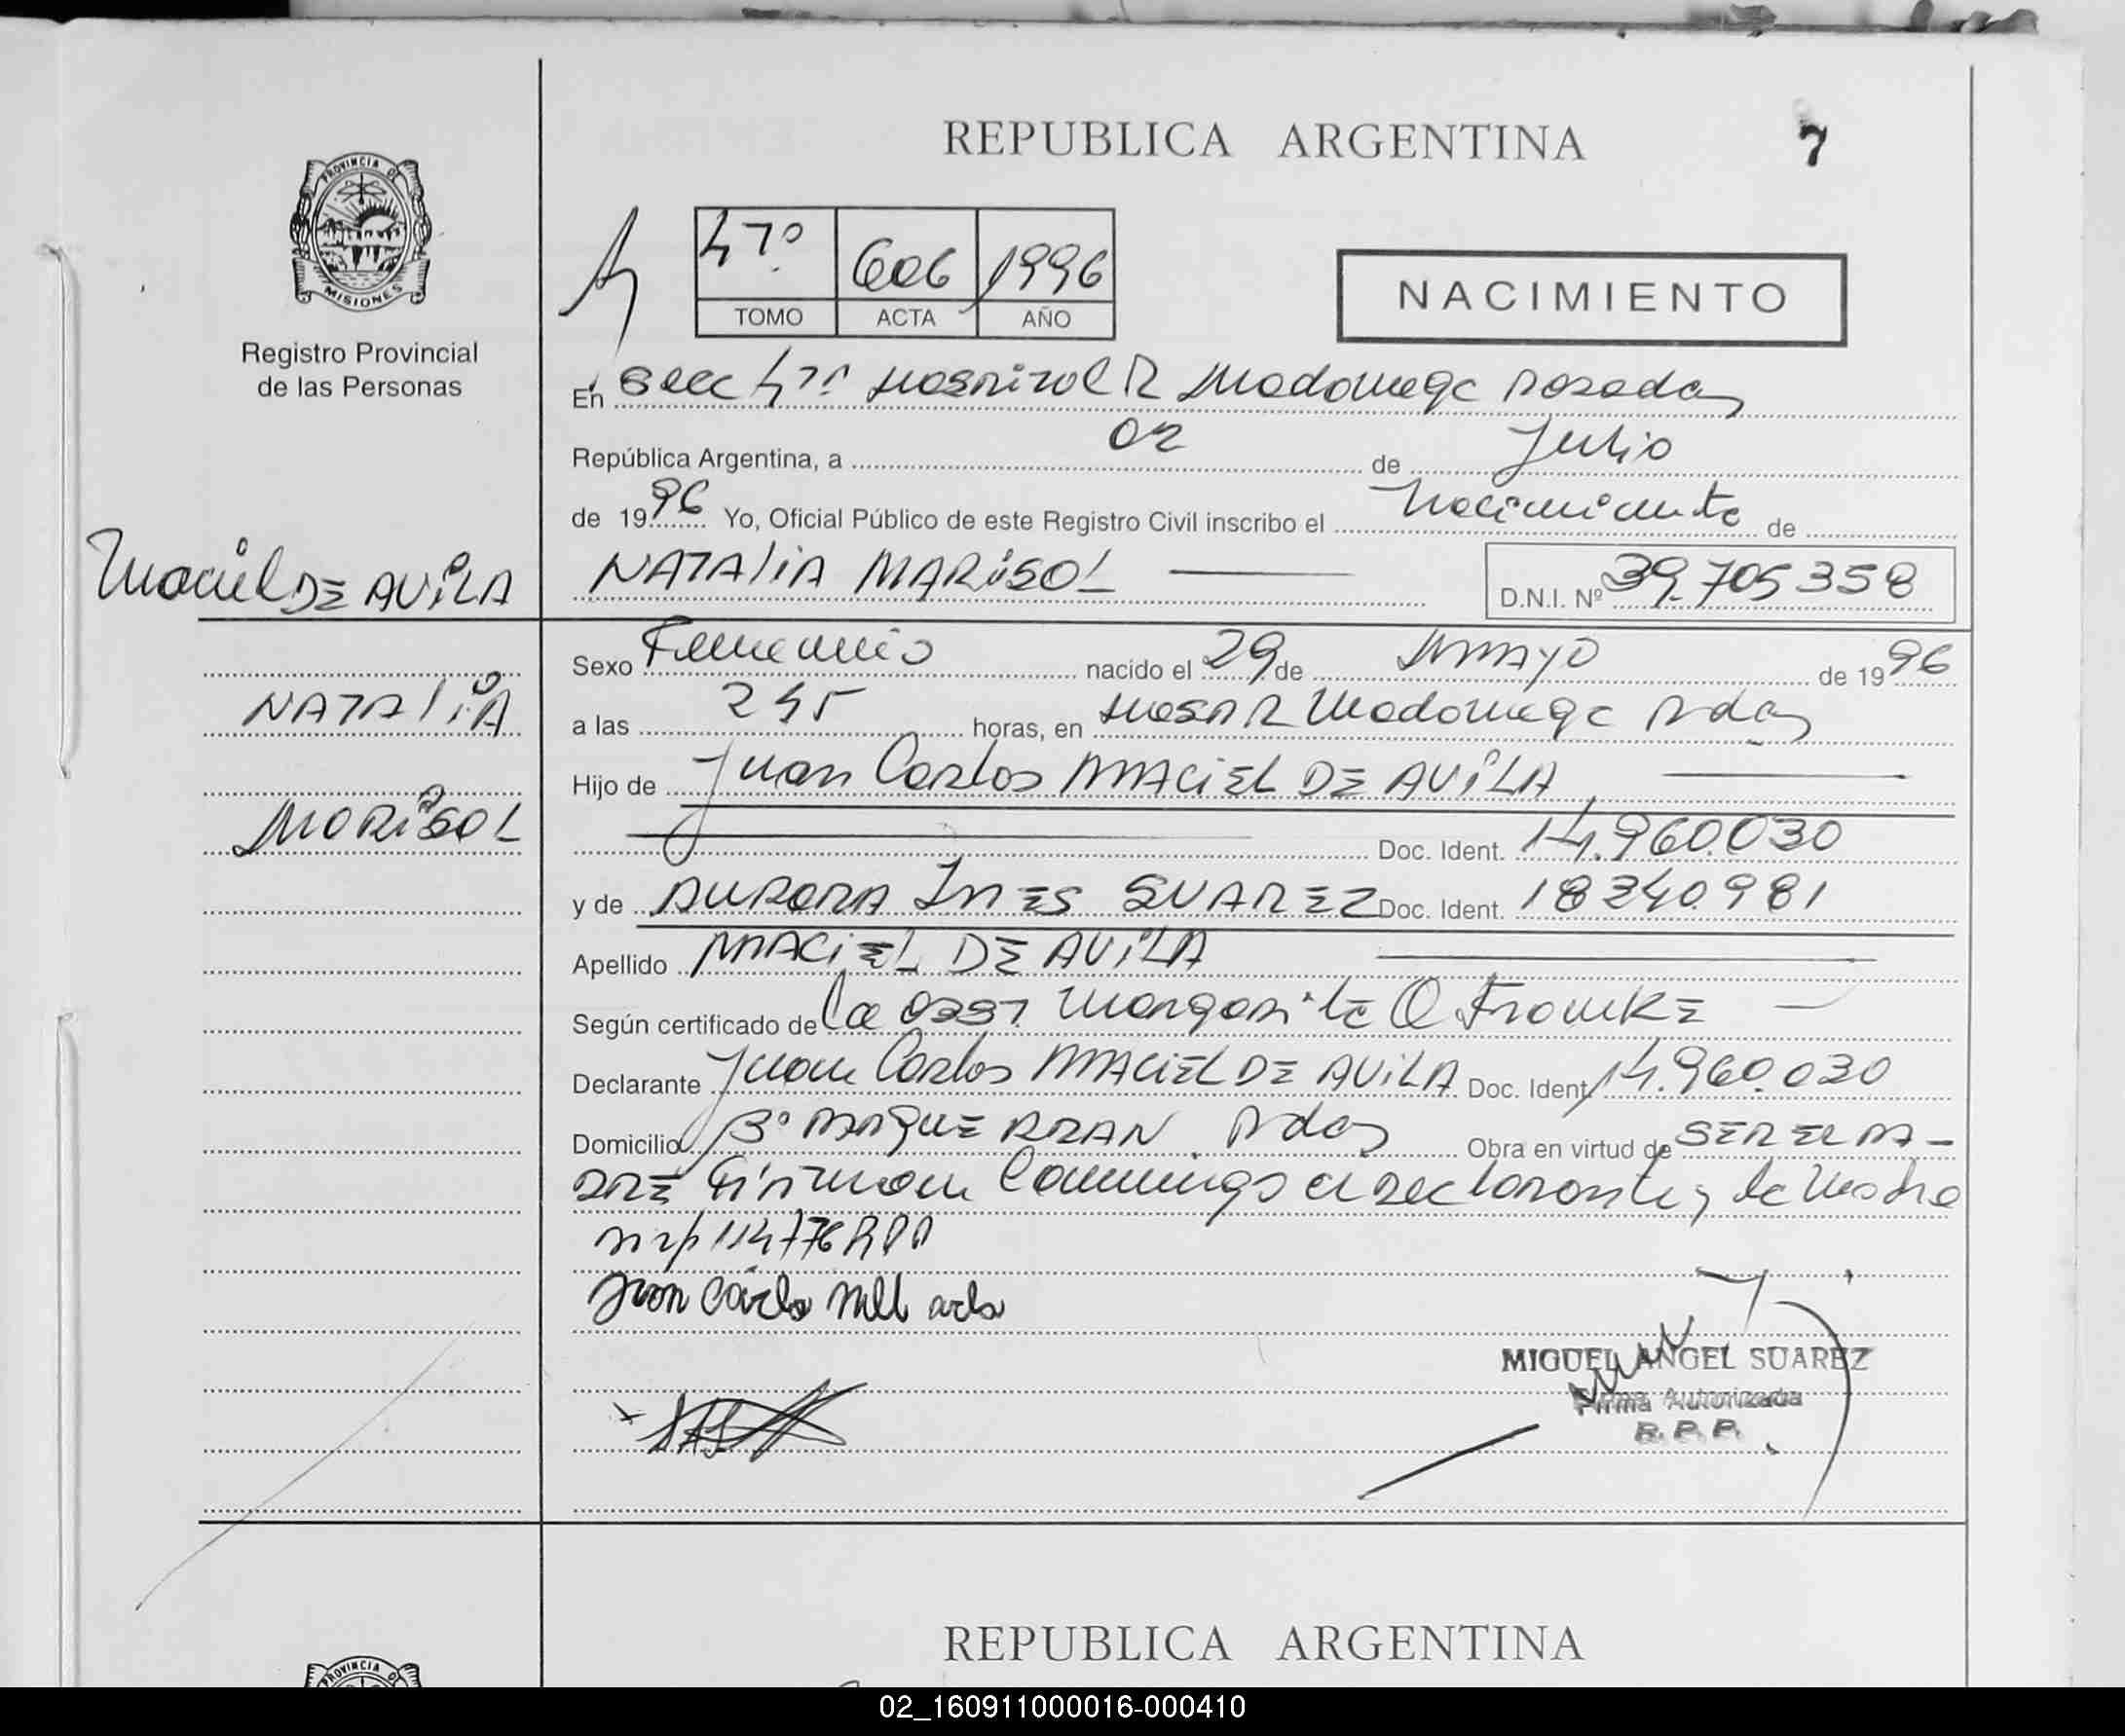 REPUBLICA ARGENTINA
7
PROVINCIA DE
MISIONES
Registro Provincial
de las Personas
47º 606 1996
TOMO ACTA AÑO
NACIMIENTO
En Secc 47º Hospital R Madariaga Posadas
República Argentina, a 02 de Julio
de 1996 Yo, Oficial Público de este Registro Civil inscribo el Nacimiento de
NATALIA MARISOL
D.N.I. Nº 39.705358
Maciel DE AVILA
NATALIA
MARISOL
Sexo Femenino nacido el 29 de MAYO de 1996
a las 245 horas, en Hosp R Madariaga Pdas
Hijo de Juan Carlos MACIEL DE AVILA
Doc. Ident. 14.960.030
y de AURORA INES SUAREZ Doc. Ident. 18240981
Apellido MACIEL DE AVILA
Según certificado de la obst Margarita Q FranKE
Declarante Juan Carlos MACIEL DE AVILA Doc. Ident. 14.960.030
Domicilio Bº Pdas Obra en virtud de SER EL PA-
DRE Firman Conmigo el declarante y la Madre
MIGUEL ANGEL SUAREZ
Firma Autorizada
R. P. P.
REPUBLICA ARGENTINA
PROVINCIA DE
02_160911000016-000410